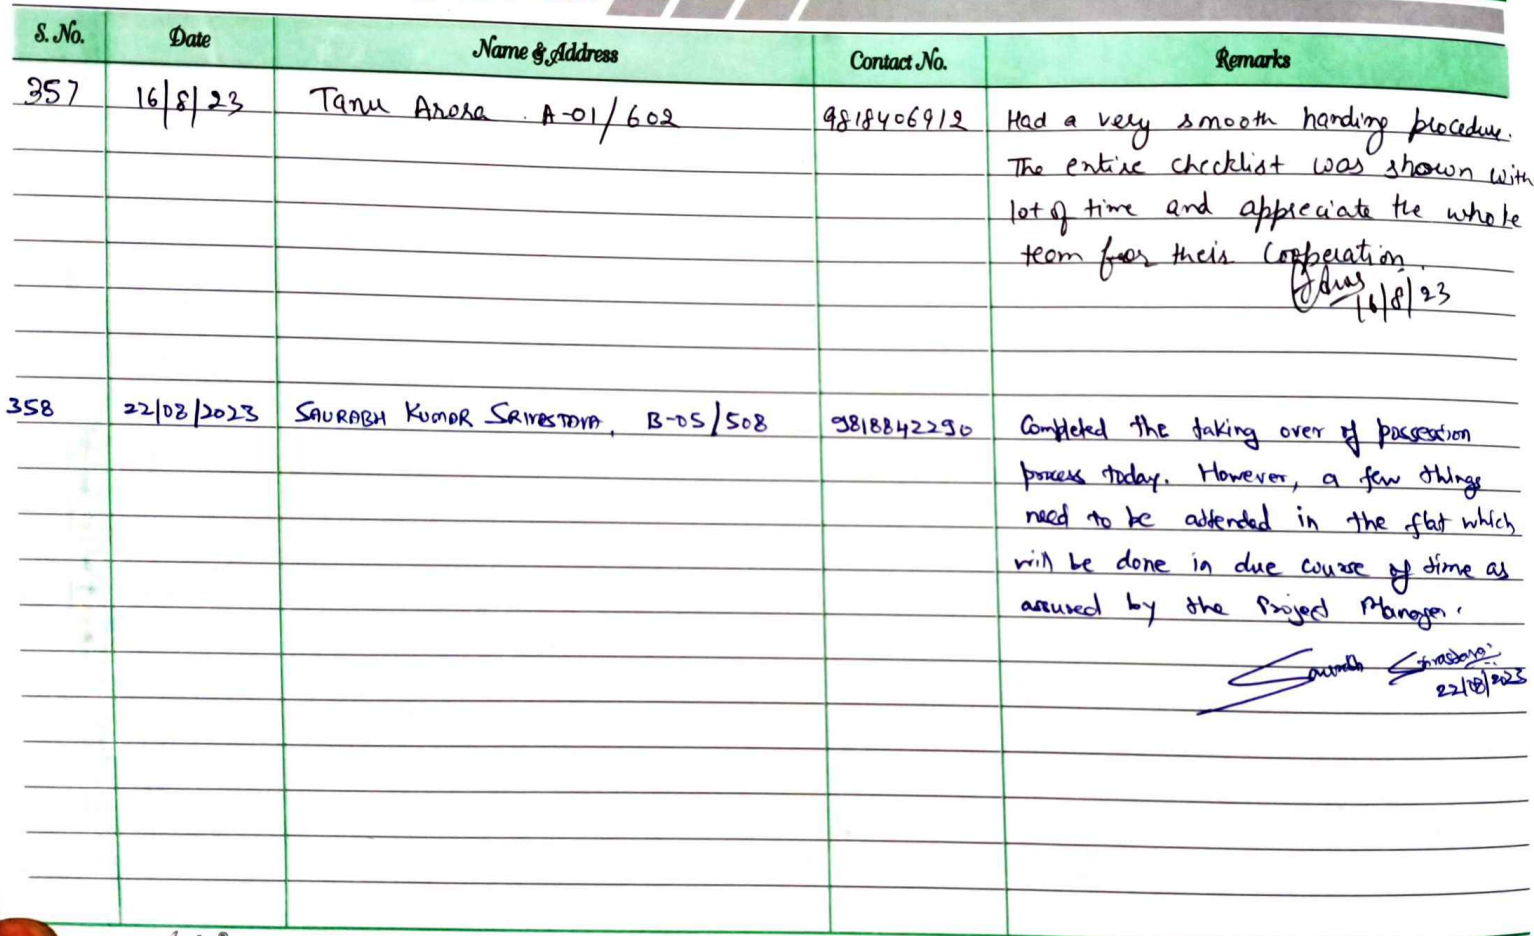 S. No. Date Name & Address Contact No. Remarks
357 16/8/23 Tanu Arora. A-01/602 9818406912 Had a very smooth handing procedure.
The entire checklist was shown with
lot of time and appreciate the whole
team for their cooperation.
16/8/23
358 22/08/2023 SAURABH KUMAR SRIVASTAVA, B-05/508 9818842290 Completed the taking over of possession
process today. However, a few things
need to be attended in the flat which
will be done in due course of time as
assured by the Project Manager.
Saurabh Srivastava
22/08/2023